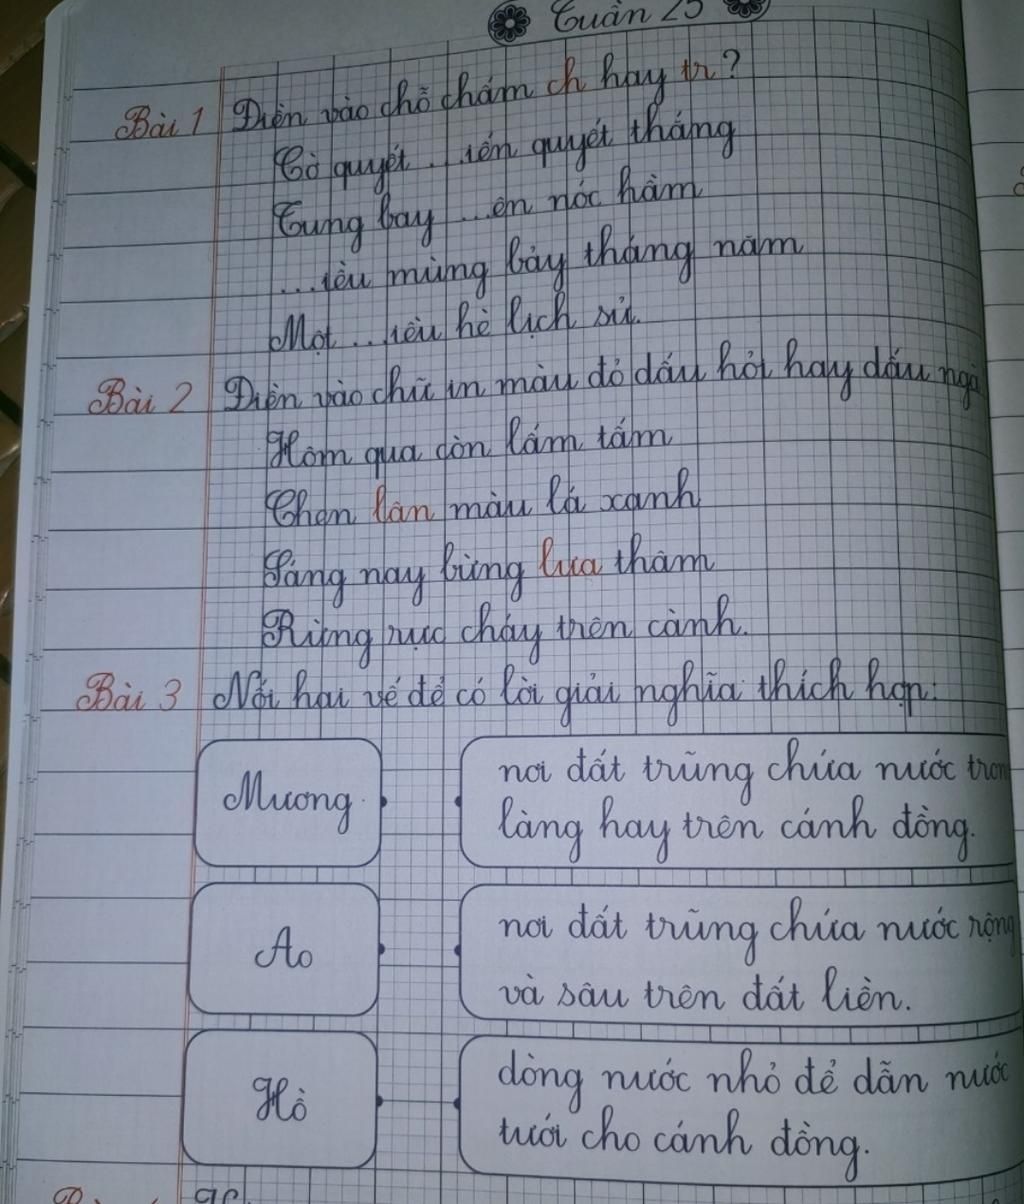 Tuần 25
Bài 1 Điền vào chỗ chấm ch hay tr?
Cờ quyết ...iến quyết thắng
Tung bay ...ên nóc hầm
...iều mùng bảy tháng năm
Một ...iều hè lịch sử.
Bài 2 Điền vào chữ in màu đỏ dấu hỏi hay dấu ngã
Hôm qua còn lấm tấm
Chen lân màu lá xanh
Sáng nay bừng lưa thẫm
Rừng rực cháy trên cành.
Bài 3 Nối hai vế để có lời giải nghĩa thích hợp:
Mương
nơi đất trũng chứa nước tron
làng hay trên cánh đồng.
Ao
nơi đất trũng chứa nước rộng
và sâu trên đất liền.
Hồ
dòng nước nhỏ để dẫn nước
tưới cho cánh đồng.